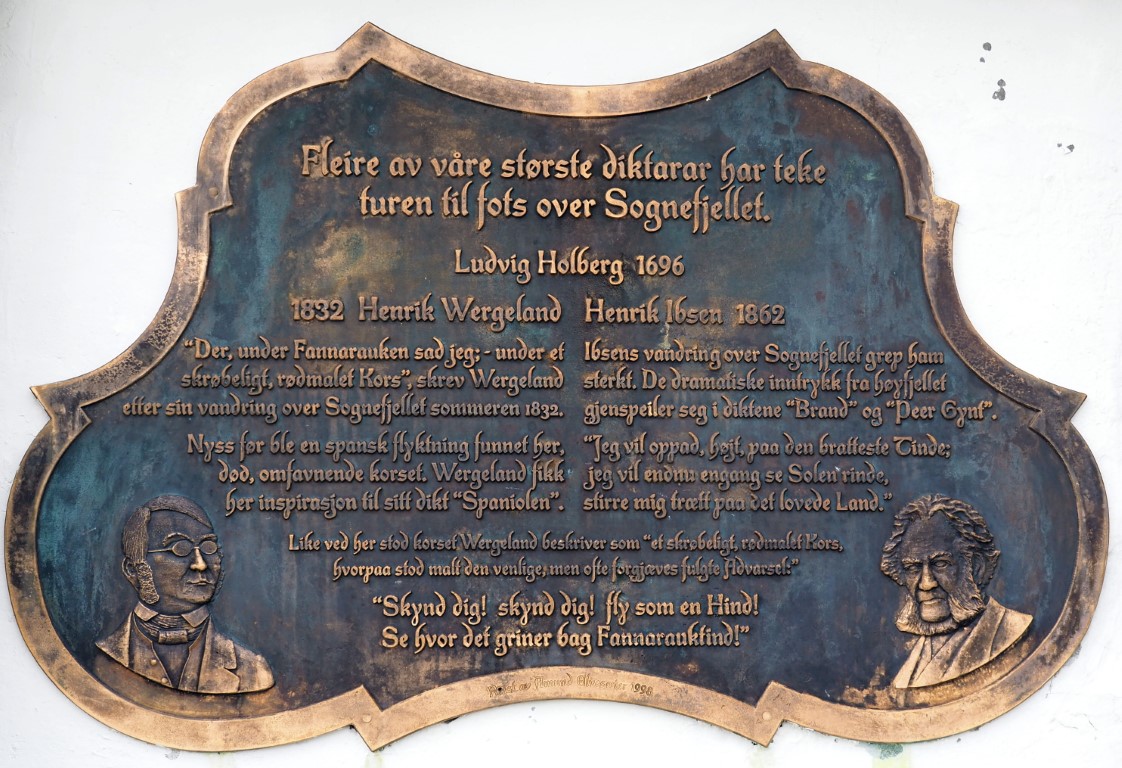 Fleire av våre største diktarar har teke
turen til fots over Sognefjellet.
Ludvig Holberg 1696
1832 Henrik Wergeland
"Der, under Fannarauken sad jeg; - under et
skrøbeligt, rødmalet Kors", skrev Wergeland
etter sin vandring over Sognefjellet sommeren 1832.
Nyss før ble en spansk flyktning funnet her,
død, omfavnende korset. Wergeland fikk
her inspirasjon til sitt dikt "Spaniolen".
Henrik Ibsen 1862
Ibsens vandring over Sognefjellet grep ham
sterkt. De dramatiske inntrykk fra høyfjellet
gjenspeiler seg i diktene "Brand" og "Peer Gynt".
"Jeg vil oppad, højt, paa den bratteste Tinde;
jeg vil endnu engang se Solen rinde,
stirre mig træt paa det lovede Land."
Like ved her stod korset Wergeland beskriver som "et skrøbeligt, rødmalet Kors,
hvorpaa stod malt den venlige, men ofte forgjæves fulgte Advarsel:"
"Skynd dig! skynd dig! fly som en Hind!
Se hvor det griner bag Fannarauktind!"
1998